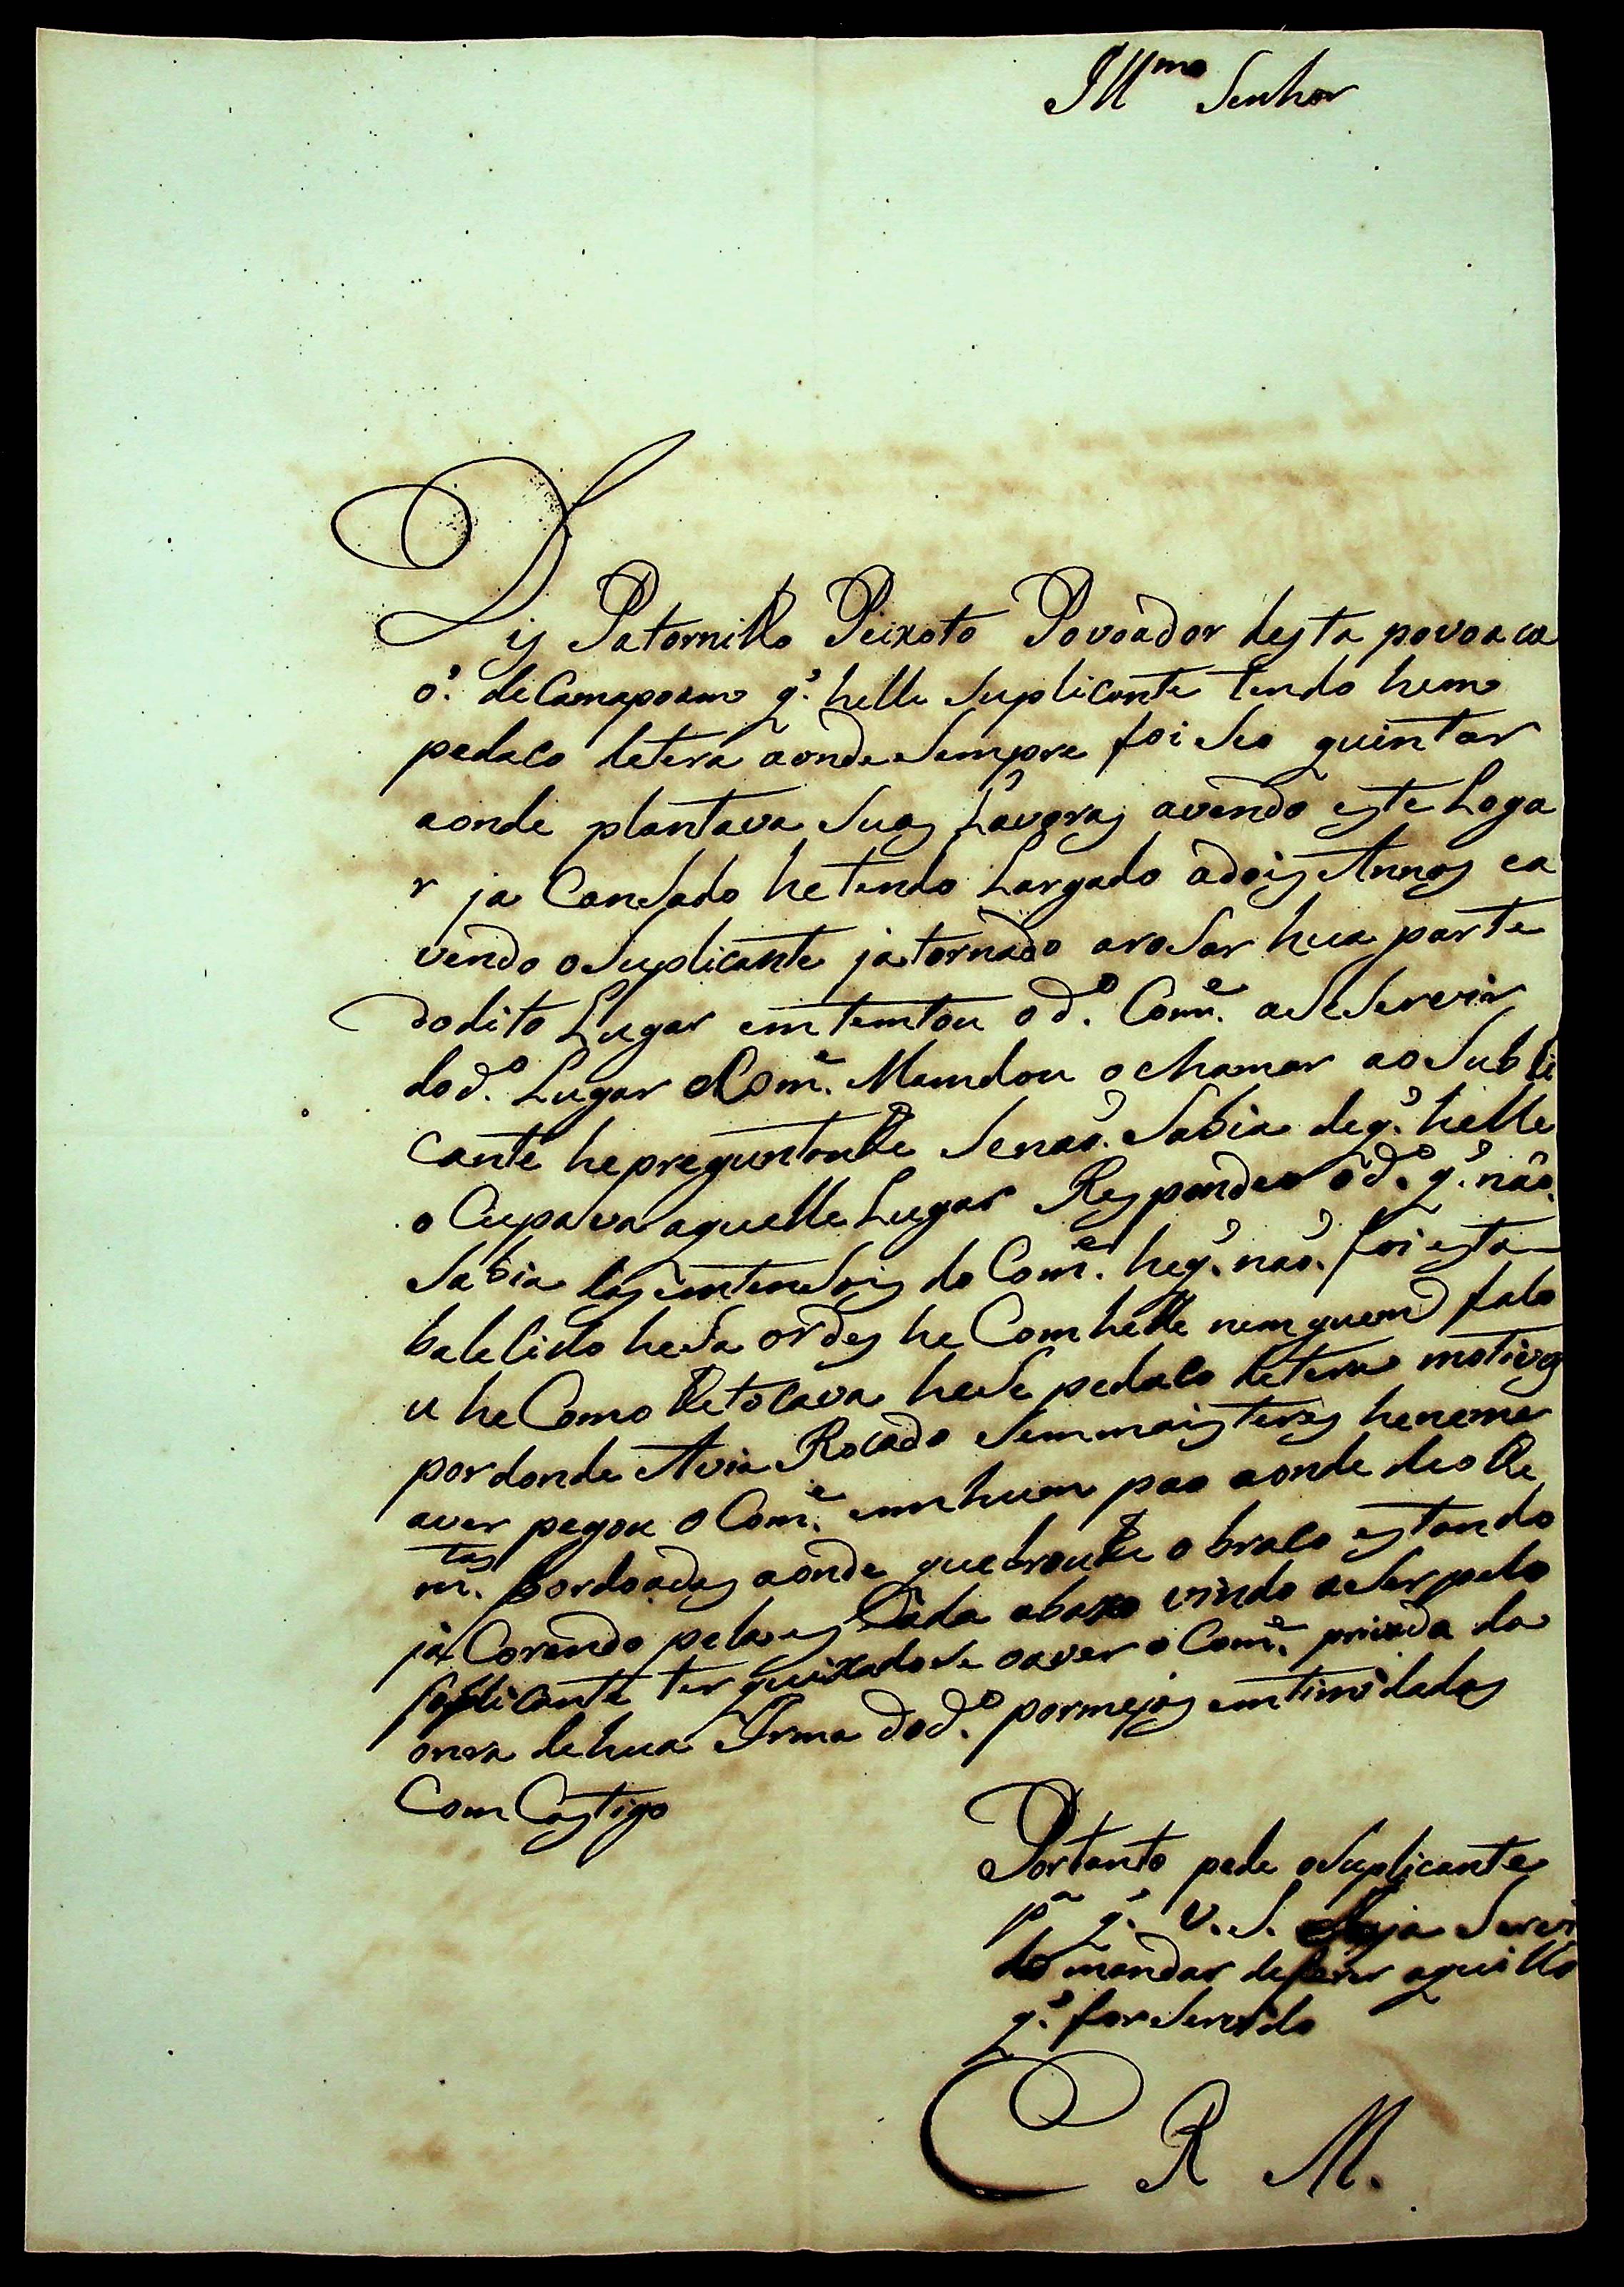 Illmo Senhor
Dis Patornillo Peixoto Povoador desta povoaca
o. de Camapoam q. helle Suplicante tendo hum
pedaco detera aonde Sempre foi Seo quintar
aonde plantava Suas Lavoras avendo este Loga
r ja Cansado he tendo Largado a dois Annos ea
vendo o Suplicante ja tornado aroSar hua parte
do dito Lugar emtemtou o do. Come. aSeServir
do do. Lugar o Come. Mamdou o chamar ao Subli
cante he preguntoulle Se não. Sabia deq. helle
o Cupava aquelle Lugar Respondeo o do. q. não.
Sabia das intensois do Come. heq. não. foi esta
balecido heSa ordes he Com helle nem guem falo
u he Como lle tocava heSe pedaco de tera motivo
por donde Avia Rocado Sem mais teres he neme
aver pegou o Come. em hum pao aonde deolle
mtas. bordoadas aonde quebroulle o braco estando
ja Corendo pela esCada abaxo vindo a Ser pelo
Soplicante ter quixadoSe o aver o Come. privada da
onra de hua Irma do do. por mejos emtimidados
Com Castigo
Portanto pede o Suplicante
pa q. V. S. Seja Servi
do mandar aquillo
q. for Servido
E R M.